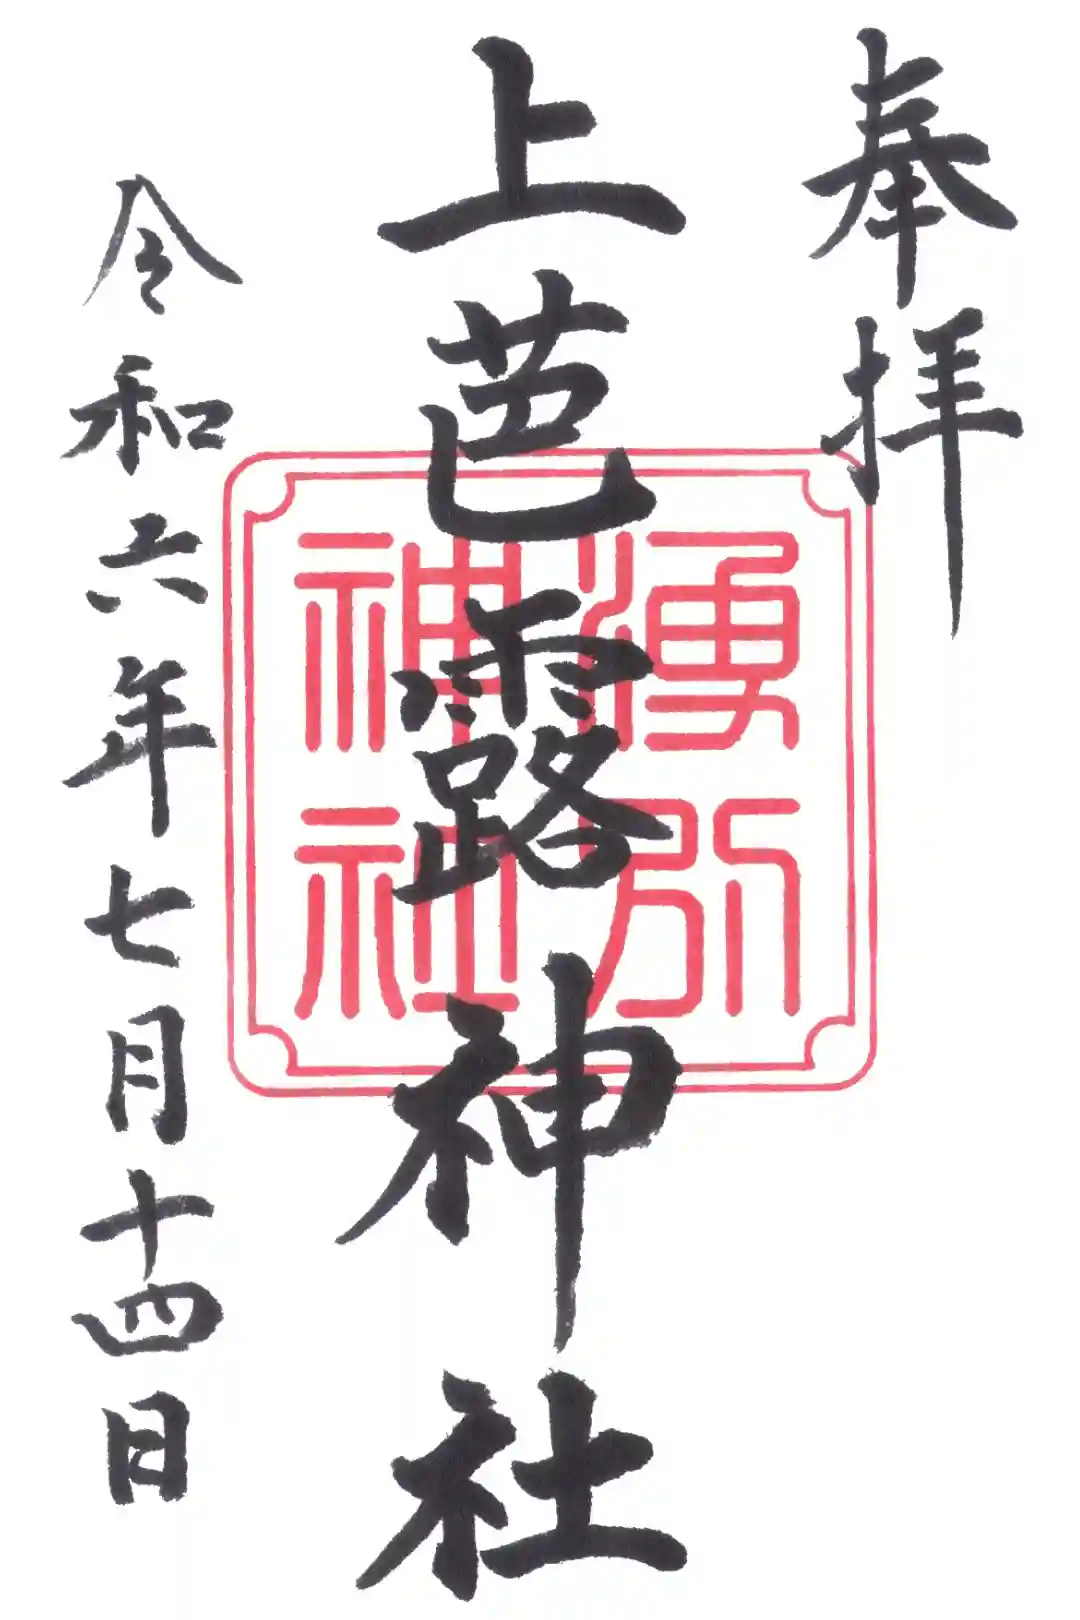 奉拝
上芭露神社
湧別
神社
令和六年七月十四日